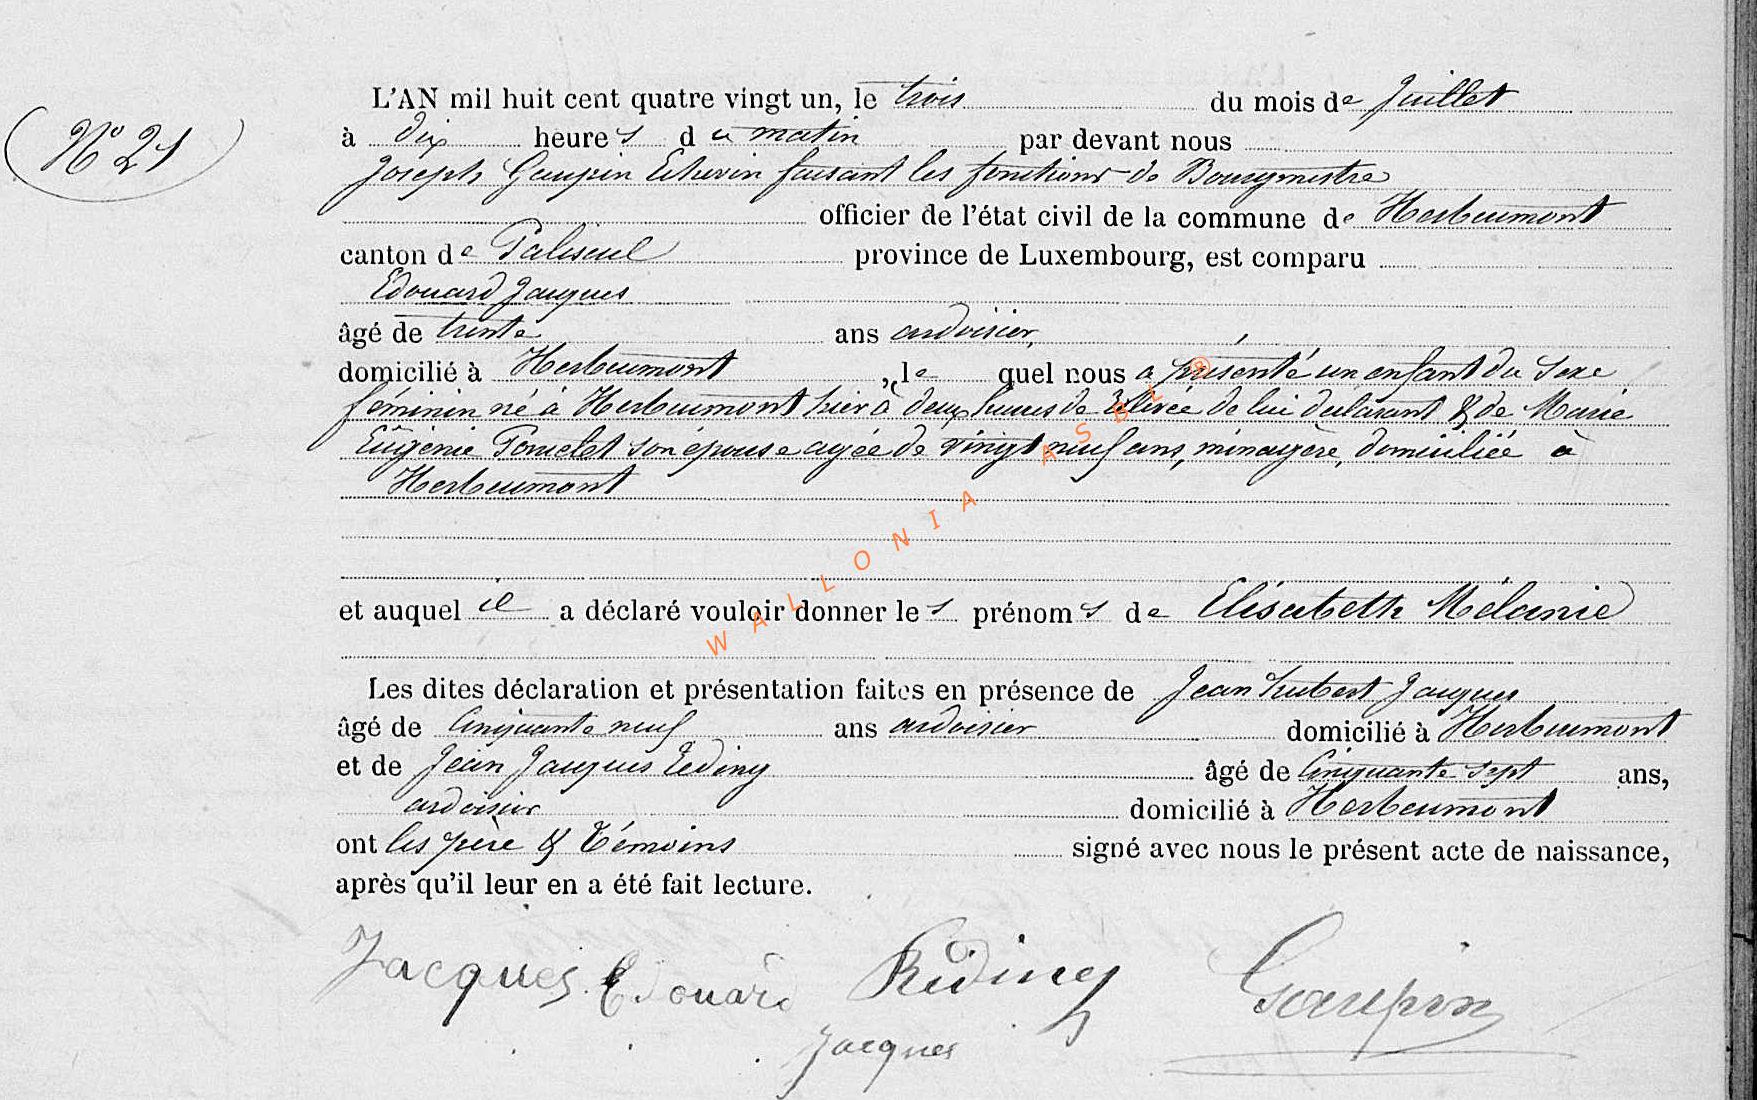 L'AN mil huit cent quatre vingt un, le trois du mois de Juillet
N° 21
à dix heures du matin par devant nous
Joseph Gaupin Echevin faisant les fonctions de Bourgmestre
officier de l'état civil de la commune de Herbeumont
canton de Paliseul province de Luxembourg, est comparu
Edouard Jacques
âgé de trente ans ardoisier,
domicilié à Herbeumont, lequel nous a présenté un enfant du sexe
féminin né à Herbeumont hier à deux heures de relevée de lui déclarant & de Marie
Eugénie Poncelet son épouse agée de vingt neuf ans, ménagère, domiciliée à
Herbeumont
et auquel il a déclaré vouloir donner les prénoms de Elisabeth Mélanie
Les dites déclaration et présentation faites en présence de Jean hubert Jacques
âgé de Cinquante neuf ans ardoisier domicilié à Herbeumont
et de Jean Jacques Reding âgé de Cinquante sept ans,
ardoisier domicilié à Herbeumont
ont les père & témoins signé avec nous le présent acte de naissance,
après qu'il leur en a été fait lecture.
Jacques Edouard Reding Gaupin
Jacques
WALLONIA ASBL ®